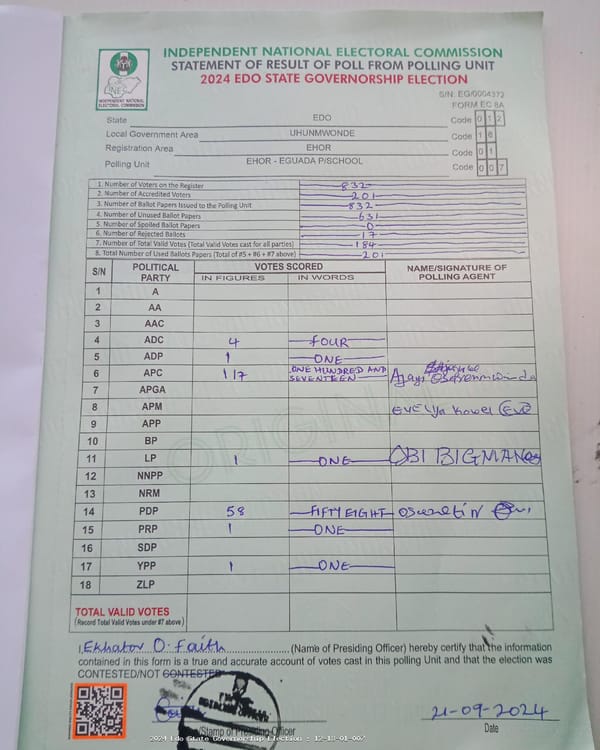 INDEPENDENT NATIONAL ELECTORAL COMMISSION
STATEMENT OF RESULT OF POLL FROM POLLING UNIT
2024 EDO STATE GOVERNORSHIP ELECTION
INEC
INDEPENDENT NATIONAL ELECTORAL COMMISSION
S/N: EG/0004372
FORM EC 8A
State EDO Code 0 1 2
Local Government Area UHUNMWONDE Code 1 8
Registration Area EHOR Code 0 1
Polling Unit EHOR - EGUADA P/SCHOOL Code 0 0 7
1. Number of Voters on the Register 832
2. Number of Accredited Voters 201
3. Number of Ballot Papers Issued to the Polling Unit 832
4. Number of Unused Ballot Papers 631
5. Number of Spoiled Ballot Papers 0
6. Number of Rejected Ballots 17
7. Number of Total Valid Votes (Total Valid Votes cast for all parties) 184
8. Total Number of Used Ballots Papers (Total of #5 + #6 + #7 above) 201
S/N POLITICAL PARTY VOTES SCORED NAME/SIGNATURE OF POLLING AGENT
IN FIGURES IN WORDS
1 A
2 AA
3 AAC
4 ADC 4 FOUR
5 ADP 1 ONE
6 APC 117 ONE HUNDRED AND SEVENTEEN
7 APGA
8 APM
9 APP
10 BP
11 LP 1 ONE OBI BIGMAN
12 NNPP
13 NRM
14 PDP 58 FIFTY EIGHT
15 PRP 1 ONE
16 SDP
17 YPP 1 ONE
18 ZLP
TOTAL VALID VOTES
(Record Total Valid Votes under #7 above)
I, Ekhator O. Faith (Name of Presiding Officer) hereby certify that the information
contained in this form is a true and accurate account of votes cast in this polling Unit and that the election was
CONTESTED/NOT CONTESTED
21-09-2024
Stamp of Presiding Officer
Date
2024 Edo State Governorship Election : 12-18-01-007